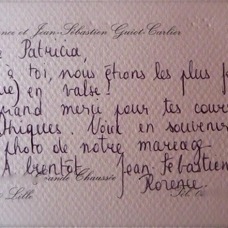 nci et Jean-Sébastien Guiet-Carlier
Patricia,
à toi, nous étions les plus f
) en valse!
grand merci pour tes cours
thiques. Voici en souvenir
photo de notre mariage
A bientôt Jean Sébastien
Florence
Chaussée
Lille